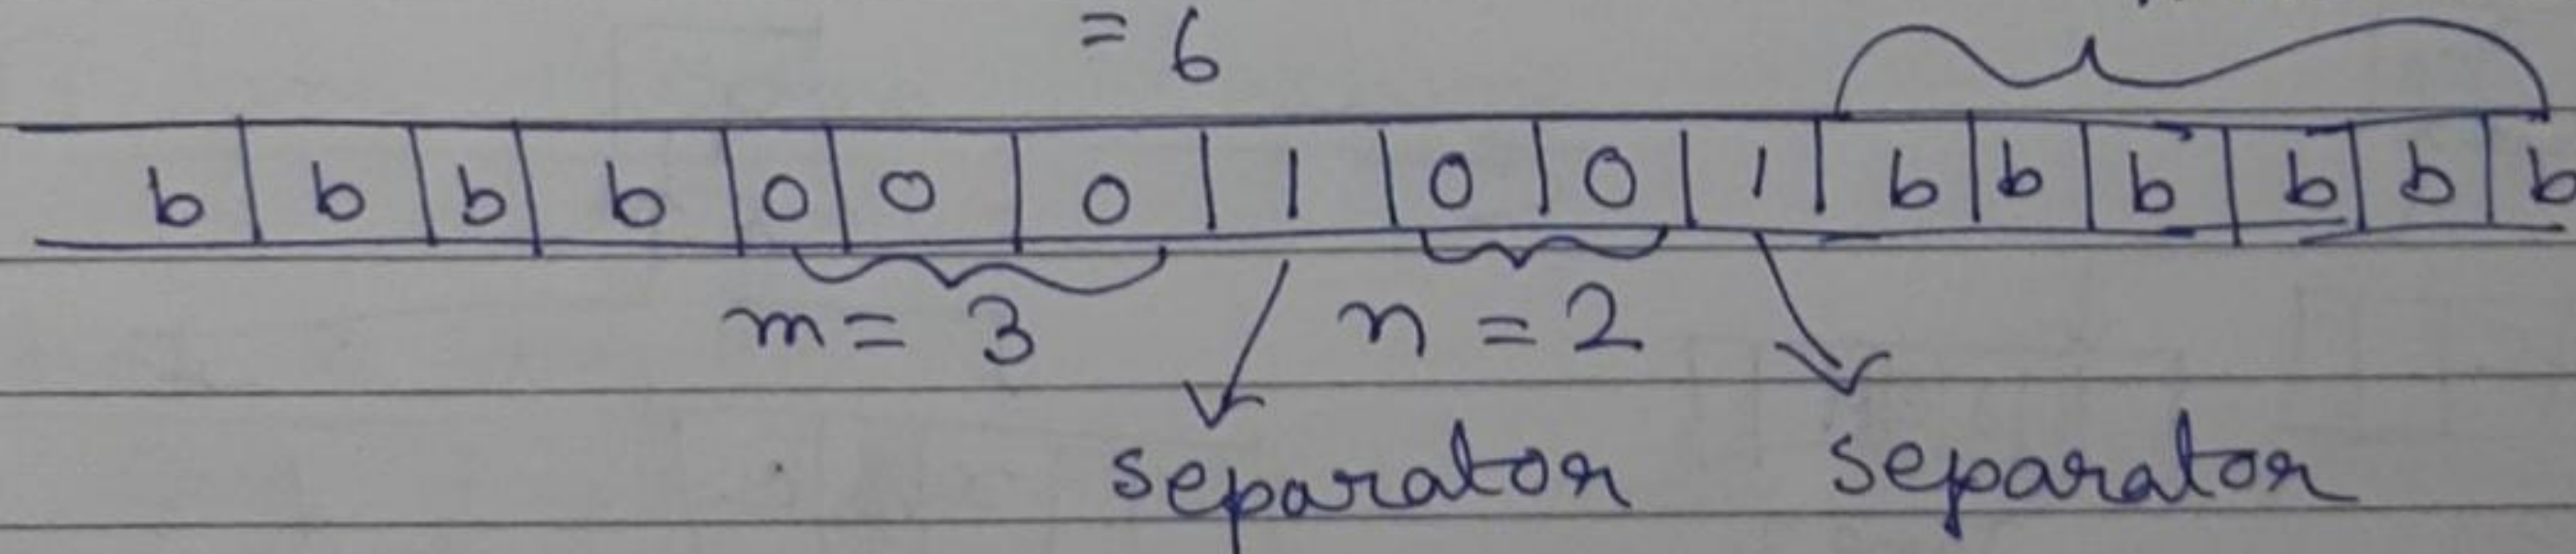 = 6
b b b b 0 0 0 1 0 0 1 b b b b b b
m = 3 n = 2
separator separator